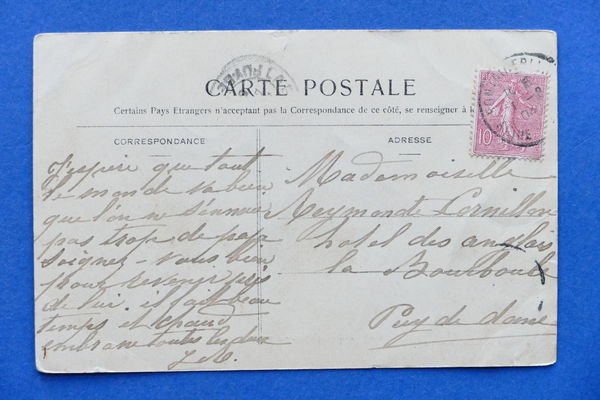 CARTE POSTALE
Certains Pays Etrangers n'acceptant pas la Correspondance de ce côté, se renseigner à
CORRESPONDANCE
J'espère que tout
le monde va bien
que l'on ne s'ennuie
pas trop de papa
Soignez-vous bien
pour revenir près
de lui. il fait beau
temps et chaud
embrasse toutes les deux
ADRESSE
Mademoiselle
Reymonde Cornillon
hotel des anglais
la Bourboule
Puy de dome
10